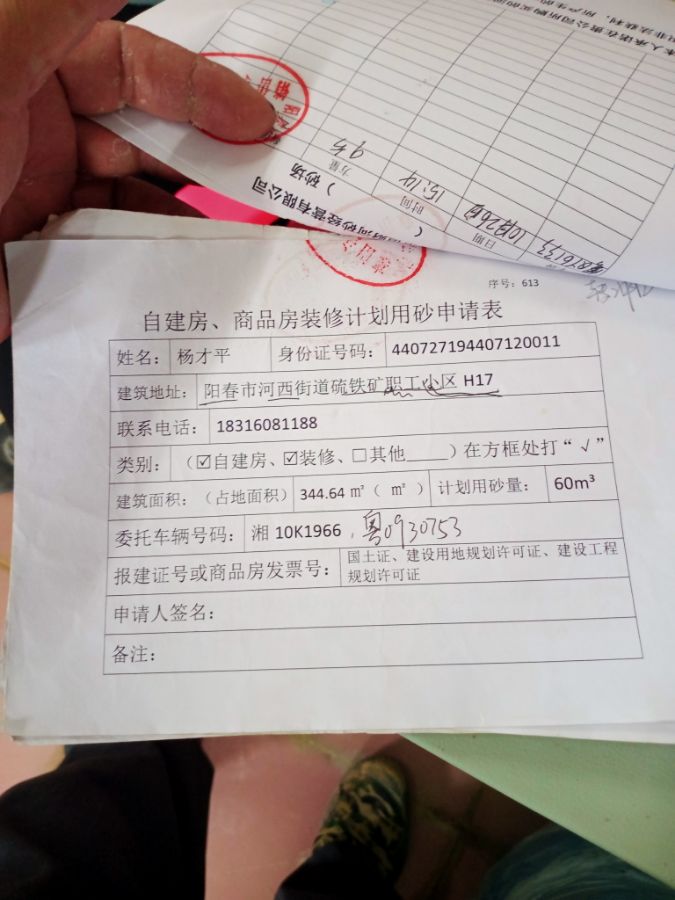 本人承诺在贵公司所购买的
非法获利,所产生的
9方
方量
15:14
时间
10月26日
日期
河砂经营有限公司
( )砂场
序号:613
自建房、商品房装修计划用砂申请表
姓名: 杨才平 身份证号码: 440727194407120011
建筑地址: 阳春市河西街道硫铁矿职工小区 H17
联系电话: 18316081188
类别: (☑自建房、☑装修、☐其他____)在方框处打“√”
建筑面积:(占地面积) 344.64 ㎡( ㎡ ) 计划用砂量: 60m³
委托车辆号码: 湘 10K1966 , 粤0930753
报建证号或商品房发票号: 国土证、建设用地规划许可证、建设工程
规划许可证
申请人签名:
备注: